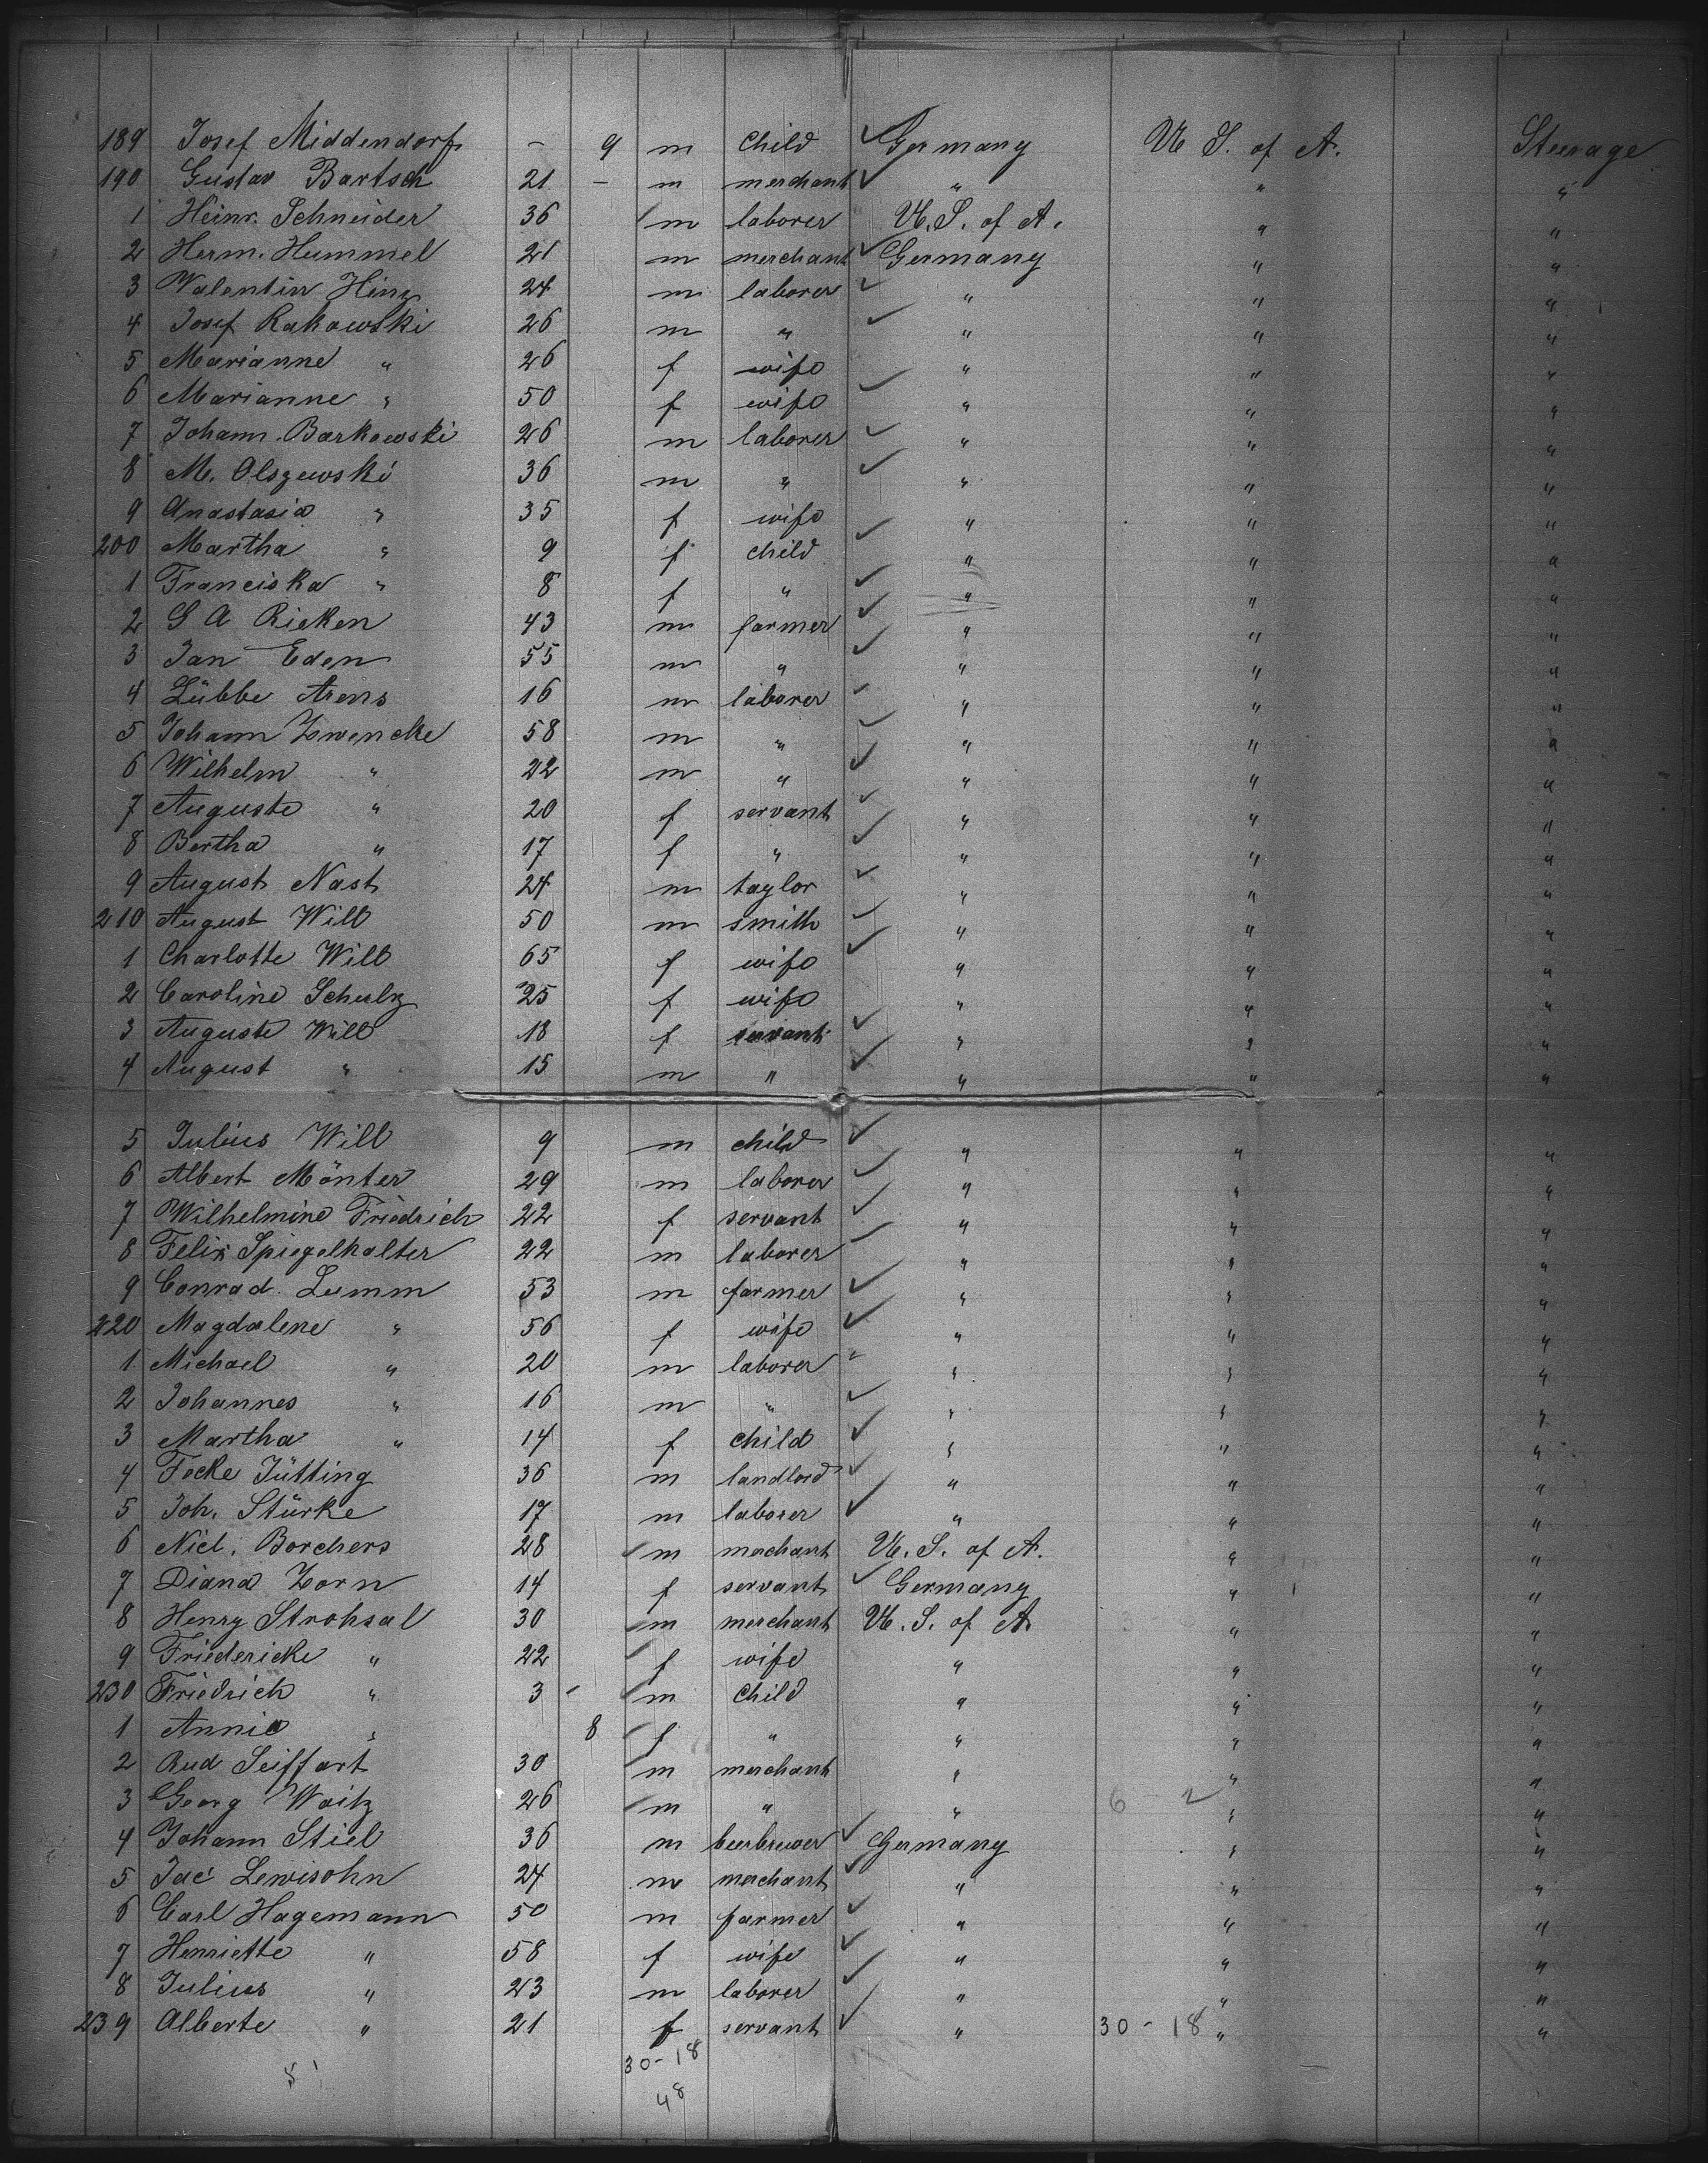 189 Josef Middendorf - 9 m Child Germany U S. of A. Steerage
190 Gustav Bartsch 21 - m merchant " " "
1 Heinr. Schneider 36 m laborer U. S. of A. " "
2 Herm. Hummel 21 m merchant Germany " "
3 Valentin Hinz 24 m laborer " " "
4 Josef Rakowski 26 m " " " "
5 Marianne " 26 f wife " " "
6 Marianne " 50 f wife " " "
7 Johann Barkowski 26 m laborer " " "
8 M. Olszewski 36 m " " " "
9 Anastasia " 35 f wife " " "
200 Martha " 9 f child " " "
1 Franciska " 8 f " " " "
2 G A Ricken 43 m farmer " " "
3 Jan Eden 55 m " " " "
4 Lübbe Arens 16 m laborer " " "
5 Johann Zwencke 58 m " " " "
6 Wilhelm " 22 m " " " "
7 Auguste " 20 f servant " " "
8 Bertha " 17 f " " " "
9 August Nast 24 m taylor " " "
210 August Will 50 m smith " " "
1 Charlotte Will 65 f wife " " "
2 Caroline Schulz 25 f wife " " "
3 Auguste Will 18 f servant " " "
4 August " 15 m " " " "
5 Julius Will 9 m child " " "
6 Albert Mönter 29 m laborer " " "
7 Wilhelmine Friedrich 22 f servant " " "
8 Felix Spiegelhalter 22 m laborer " " "
9 Conrad Lumm 53 m farmer " " "
220 Magdalene " 56 f wife " " "
1 Michael " 20 m laborer " " "
2 Johannes " 16 m " " " "
3 Martha " 14 f child " " "
4 Focke Jütting 36 m landlord " " "
5 Joh. Stürke 17 m laborer " " "
6 Nicl. Borchers 28 m merchant U. S. of A. " "
7 Diana Zorn 14 f servant Germany " "
8 Henry Strohsal 30 m merchant U. S. of A. " "
9 Friedericke " 22 f wife " " "
230 Friedrich " 3 - m Child " " "
1 Annie " 8 f " " " "
2 Rud Seiffart 30 m merchant " " "
3 Georg Waitz 26 m " " 6 - 2 " "
4 Johann Stiel 36 m beerbrewer Germany " "
5 Jac Lewisohn 24 m merchant " " "
6 Carl Hagemann 50 m farmer " " "
7 Henriette " 58 f wife " " "
8 Julius " 23 m laborer " " "
239 Alberte " 21 f servant " 30 - 18 " "
30 - 18
48